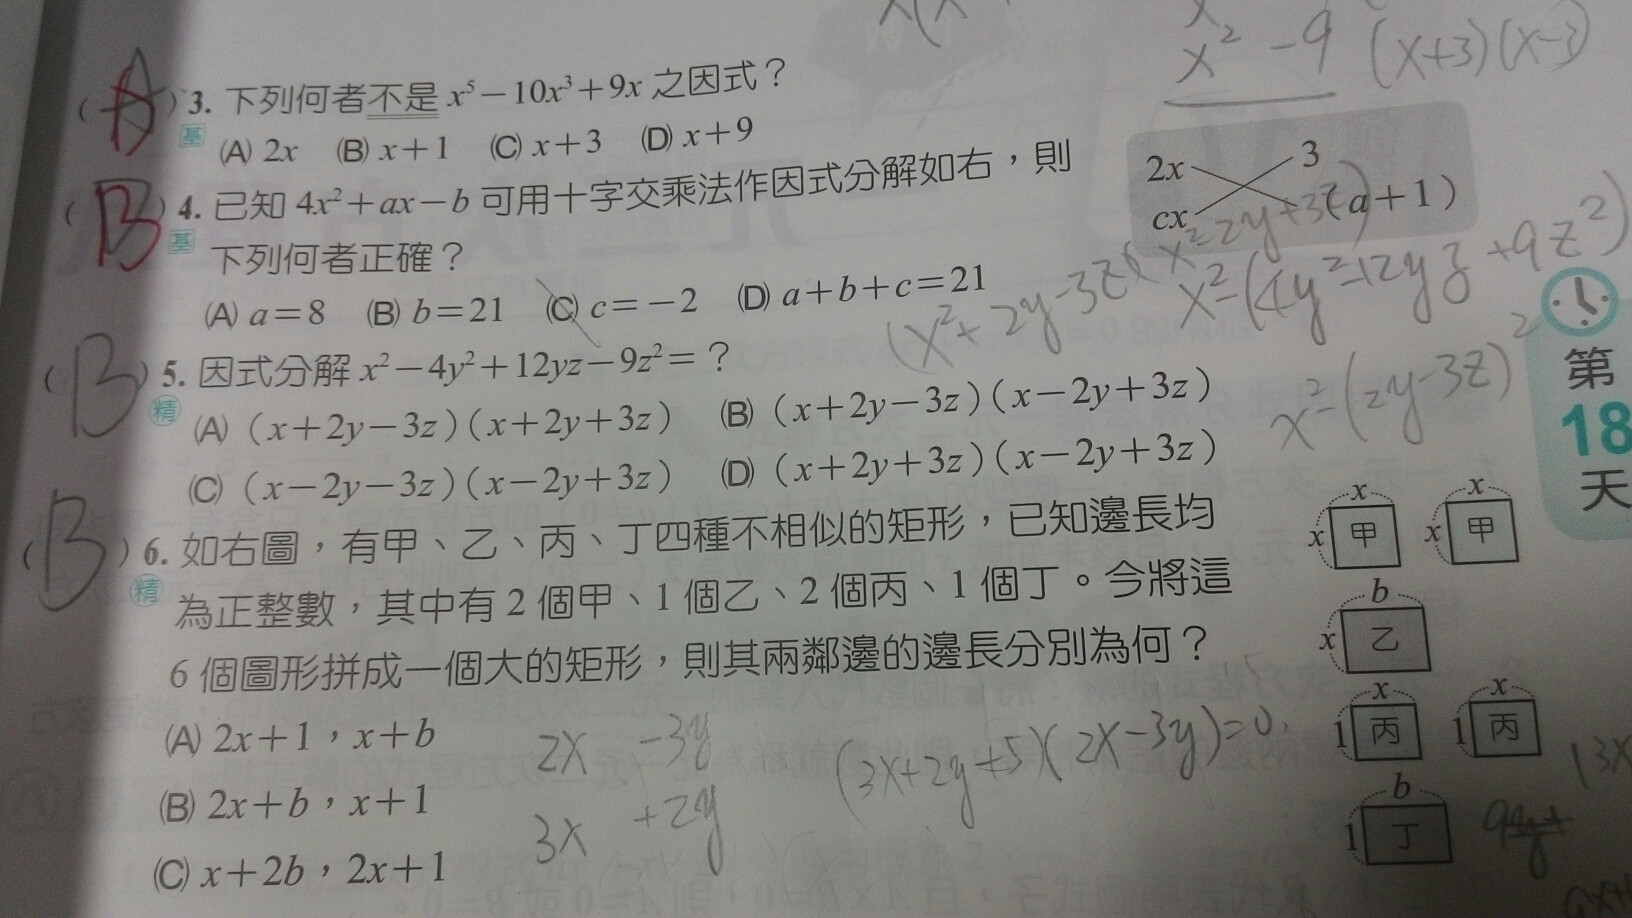 x² - 9 (x+3)(x-3)
(A) 3. 下列何者不是 x⁵－10x³＋9x 之因式？
基
(A) 2x (B) x＋1 (C) x＋3 (D) x＋9
(B) 4. 已知 4x²＋ax－b 可用十字交乘法作因式分解如右，則
基 下列何者正確？
2x 3
cx －(a＋1)
(A) a＝8 (B) b＝21 (C) c＝－2 (D) a＋b＋c＝21
(x²+2y-3z)(x²-2y+3z)
x²-(4y²-12yz+9z²)
x²-(2y-3z)²
(B) 5. 因式分解 x²－4y²＋12yz－9z²＝？
精
(A) (x＋2y－3z)(x＋2y＋3z) (B) (x＋2y－3z)(x－2y＋3z)
(C) (x－2y－3z)(x－2y＋3z) (D) (x＋2y＋3z)(x－2y＋3z)
第
18
天
(B) 6. 如右圖，有甲、乙、丙、丁四種不相似的矩形，已知邊長均
精 為正整數，其中有 2 個甲、1 個乙、2 個丙、1 個丁。今將這
6 個圖形拼成一個大的矩形，則其兩鄰邊的邊長分別為何？
(A) 2x＋1，x＋b
(B) 2x＋b，x＋1
(C) x＋2b，2x＋1
x x
x 甲 x 甲
b
x 乙
x x
1 丙 1 丙
b
1 丁
2x -3y
3x +2y
(3x+2y+5)(2x-3y)=0
(3x